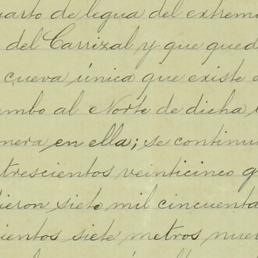 uarto de legua del extremo
del Carrizal y que qued
cueva única que existe e
umbo al Norte de dicha
nera en ella; se continu
trescientos veinticinco g
ieron siete mil cincuenta
ientos siete metros nue